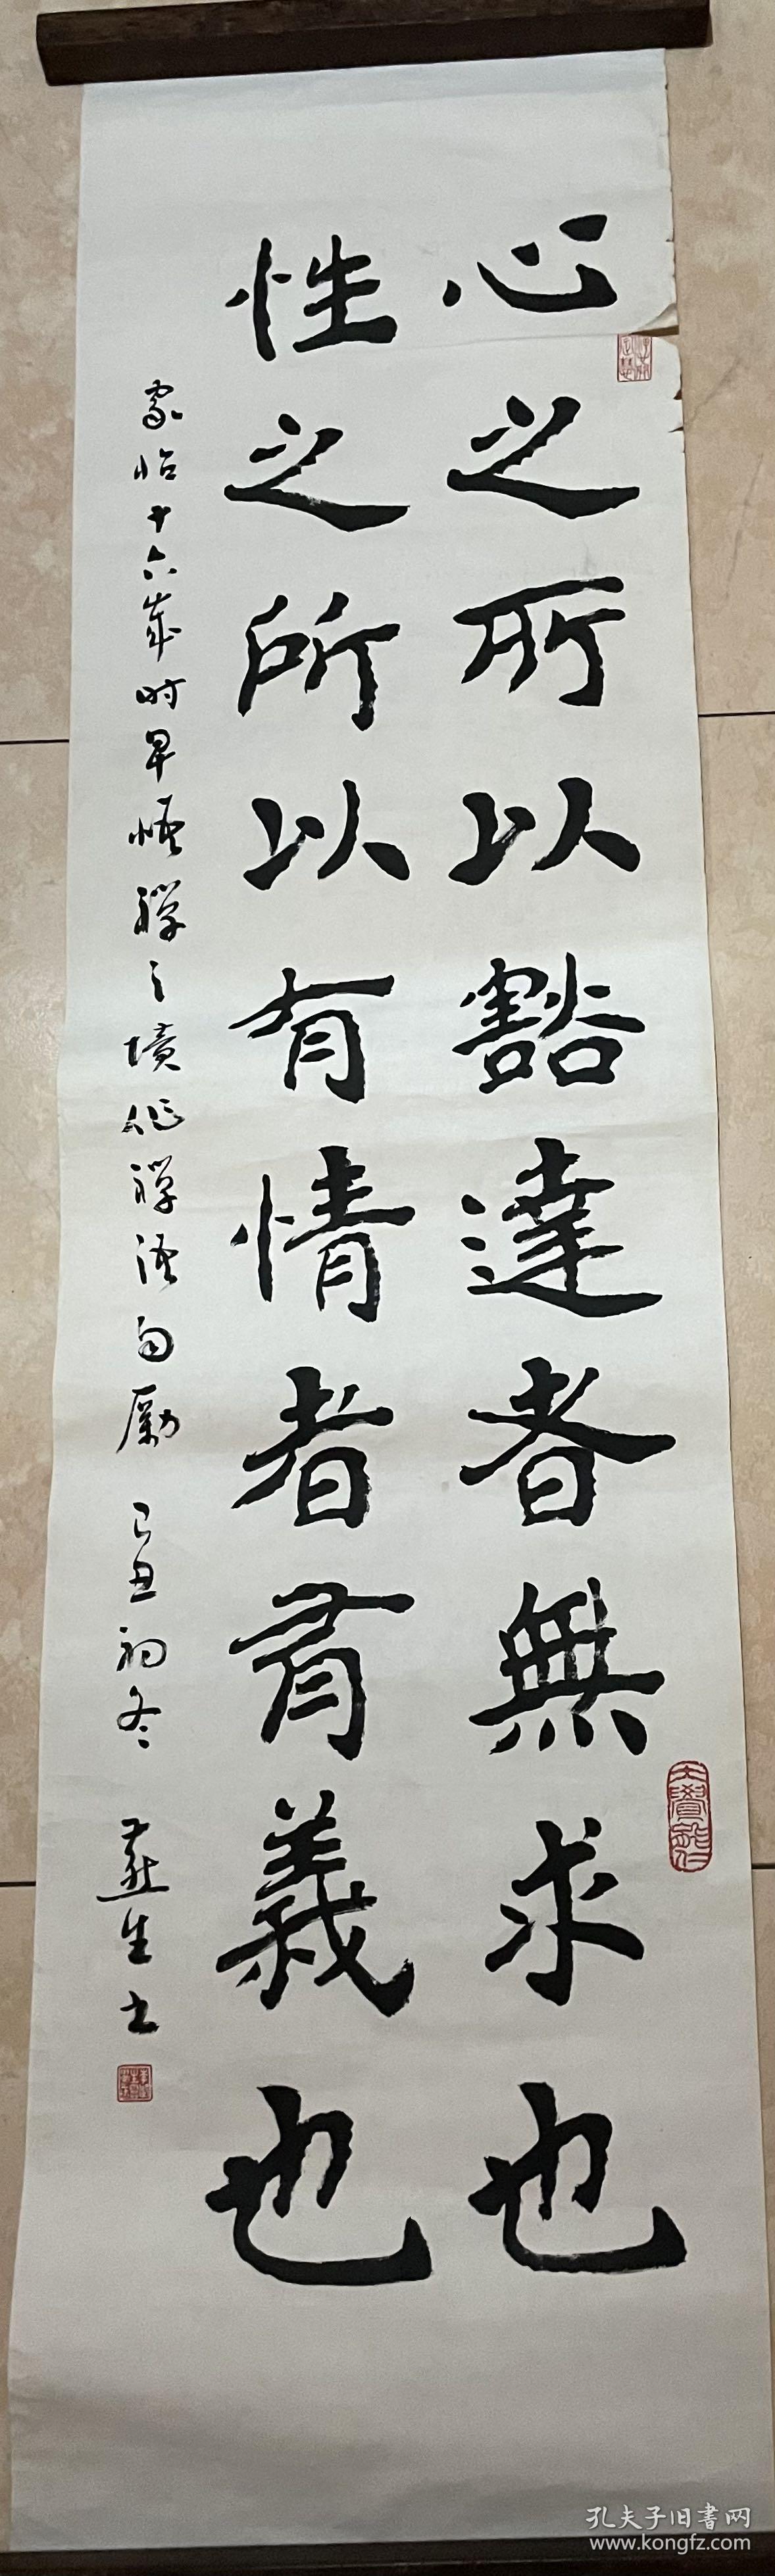 心之所以豁達者無求也
性之所以有情者有義也
家怡十六歲时早悟禪之境作禪语自勵 己丑初冬 燕生书
孔夫子旧書网
www.kongfz.com